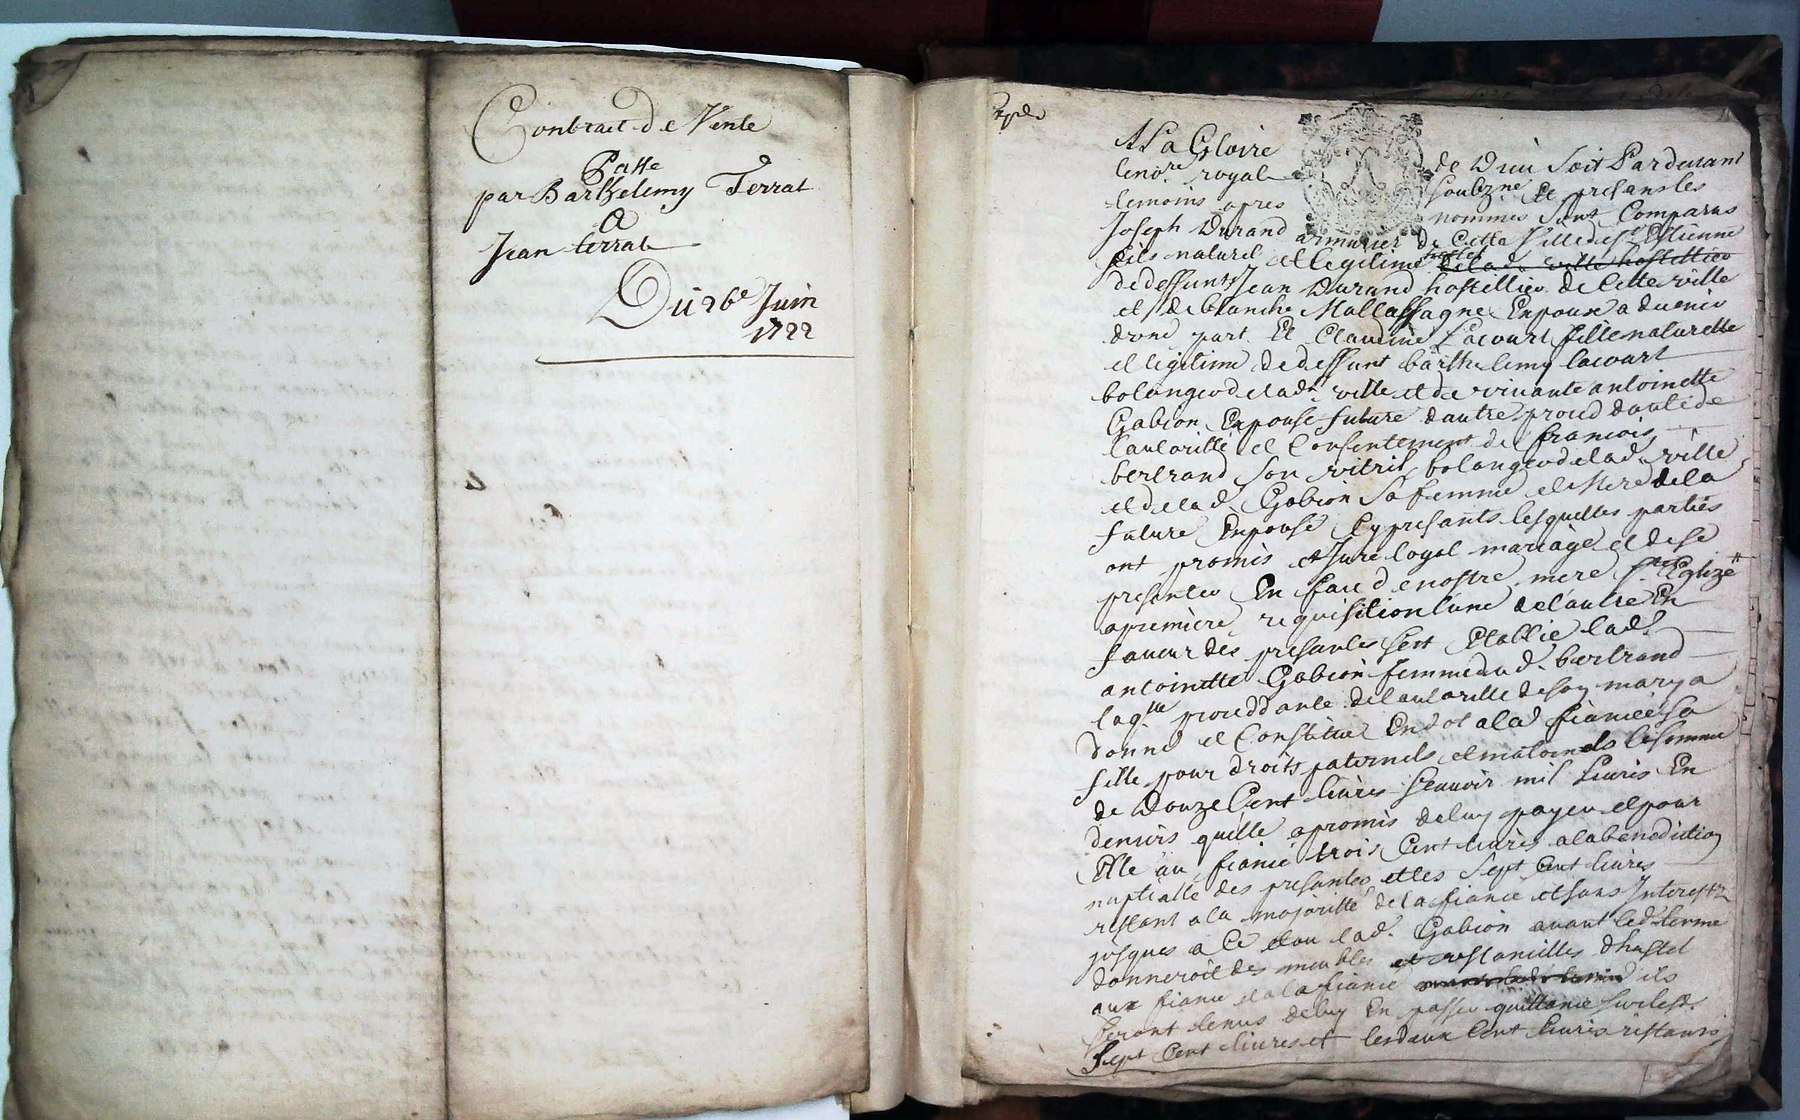 Contract de Vente
Passe
par Barthelemy Terrat
A
Jean terrat
Du 26e Juin
1722
A La Gloire de Dieu Soit Pardevant
le no.re royal soubzne Et presans les
temoins apres nommes Sont Comparus
Joseph Durand armurier de Cette Ville de St Estienne
fils naturel et legitime de la d. ville hostellier
de deffunts Jean Durand hostellier de Cette ville
et de blanche Mallassagne Enpoux a duenir
dune part Et Claudine Lacourt fille naturelle
et legitime de deffunt barthelemy lacourt
bolanger de lad. ville et de viuante antoinette
Gabion Enpouse future dautre proceddante de
lautoritte et Consentement de francois
bertrand Son vitrit bolanger de lad. ville
et de lad. Gabion Sa femme et Mere de la
future Enpouse Cy presants lesquelles parties
ont promis et Jure loyal mariage et de se
presenter En face de nostre mere Ste Eglize
a premiere requisition lune de lautre En
faueur des presantes sest Establie lad.
antoinette Gabion femme dud. bertrand
laqlle proceddante de lautoritte de son mary a
donne et Constitue En dot a lad fiancee sa
fille pour droits paternels et maternels la somme
de Douze Cent liures Scauoir mil Liures En
deniers quelle a promis de luy payer et pour
Elle au fiance trois Cent liures a la benediction
nuptialle des presantes et les Sept Cent liures
restant a la majoritte de la fiance et sans Interestz
jusques a Ce et ou lad. Gabion auant led. terme
donneroit des meubles et ustancilles dhostel
aux fiance et a la fiance ils
seront tenus de luy En passer quittance Sur lesd.
Sept Cent liures et les deux Cent liures restants